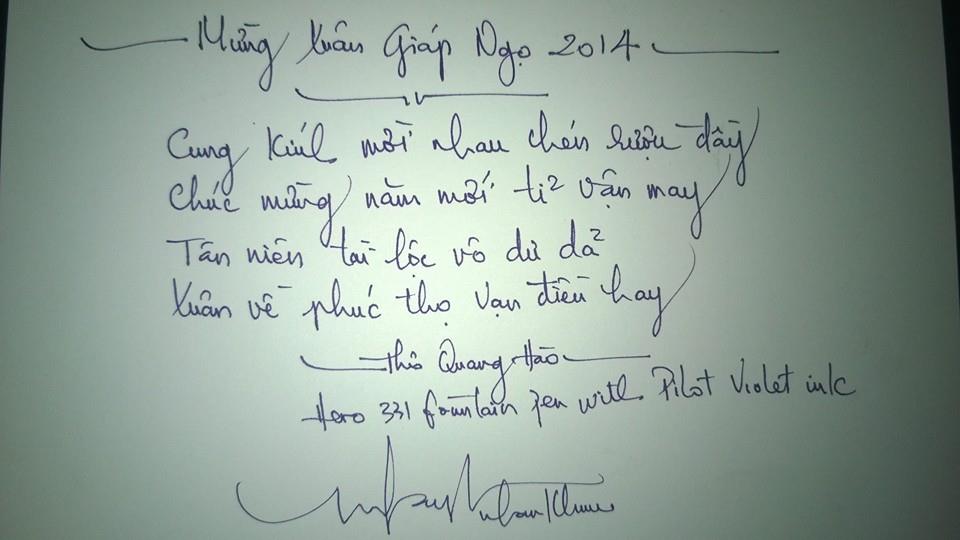 Mừng Xuân Giáp Ngọ 2014
Cung Kính mời nhau chén rượu đầy
Chúc mừng năm mới tỉ vận may
Tân niên tài lộc vô dư dả
Xuân về phúc thọ vạn điều hay
Thơ Quang Hào
Hero 331 fountain pen with Pilot Violet ink